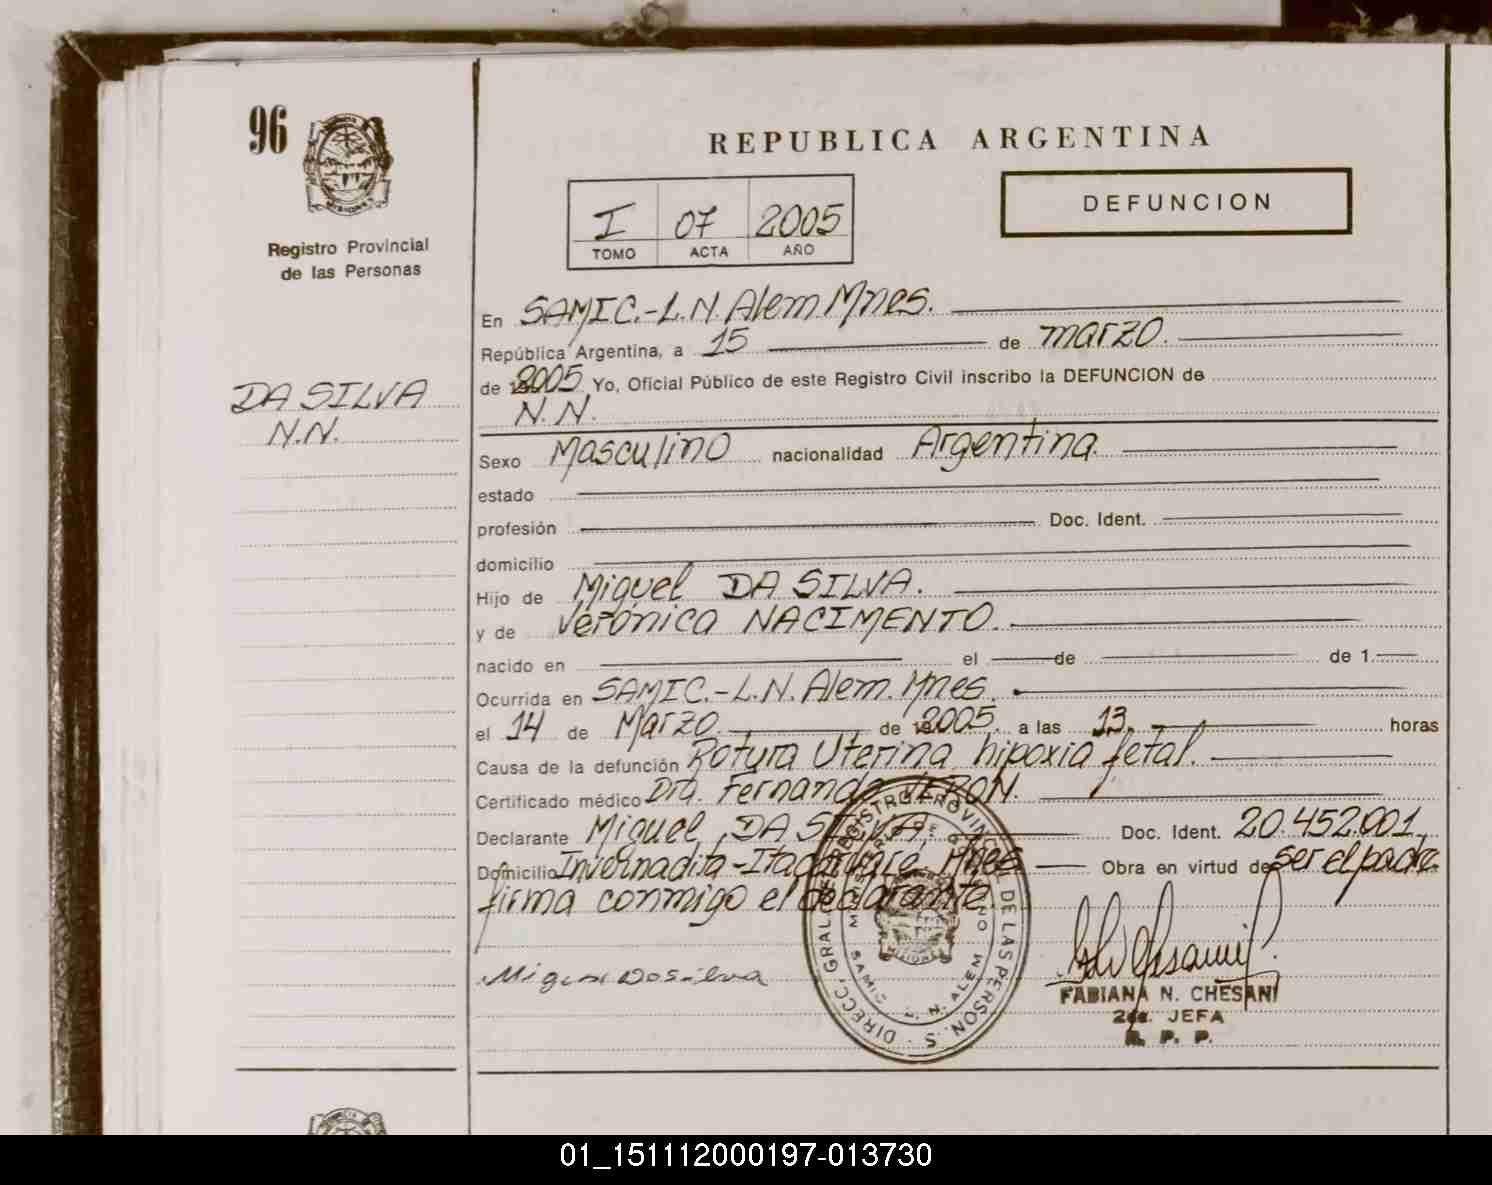 96
Registro Provincial
de las Personas
DA SILVA
N.N.
REPUBLICA ARGENTINA
I 07 2005
TOMO ACTA AÑO
DEFUNCION
En SAMIC.-L.N. Alem Mnes.
República Argentina, a 15 de marzo.
de 2005 Yo, Oficial Público de este Registro Civil inscribo la DEFUNCION de
N.N.
Sexo Masculino nacionalidad Argentina.
estado
profesión Doc. Ident.
domicilio
Hijo de Miguel DA SILVA.
y de Verónica NACIMENTO.
nacido en el de de 1.
Ocurrida en SAMIC.-L.N. Alem. Mnes.
el 14 de Marzo. de 2005. a las 13. horas
Causa de la defunción Rotura Uterina, hipoxia fetal.
Certificado médico Dra. Fernanda VERON.
Declarante Miguel DA SILVA, Doc. Ident. 20.452.001,
Domicilio Invernadita-Itacaruare. Mnes Obra en virtud de ser el padre.
firma conmigo el declarante
DIRECC. GRAL. DEL REGISTRO PROVIN. DE LAS PERSON. S.
SAMIC L. N. ALEM
MISIONES
FABIANA N. CHESANI
2da. JEFA
R. P. P.
01_151112000197-013730